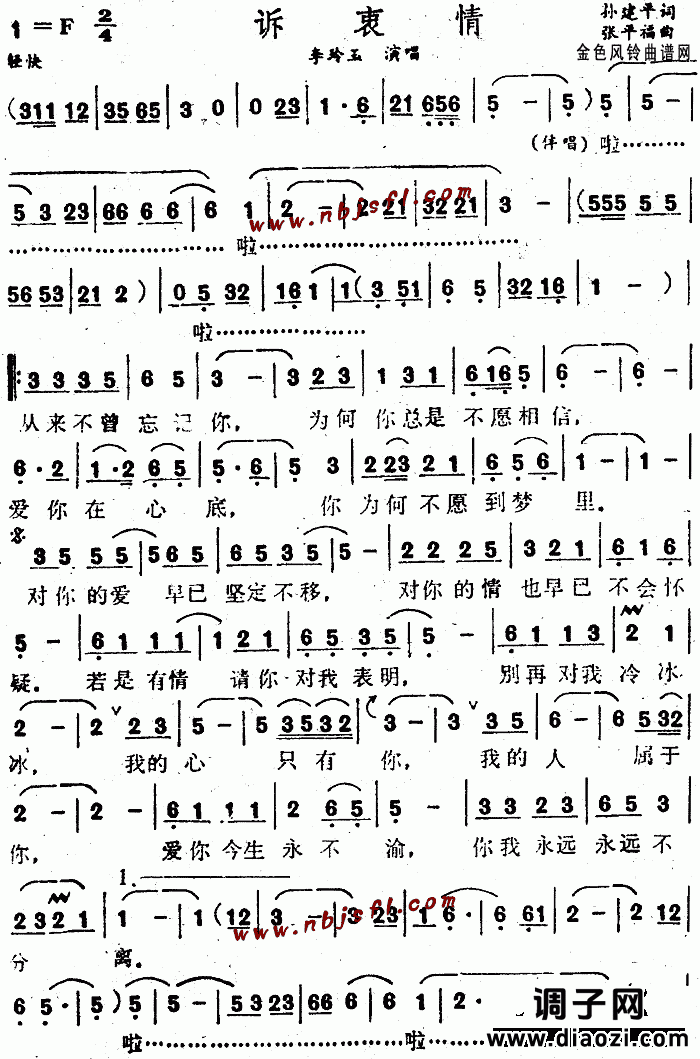 诉衷情
1=F 2/4
孙建平词
张平福曲
轻快
李玲玉 演唱
金色风铃曲谱网
(3111 12 | 35 65 | 3 0 | 0 23 | 1· 6 | 21 656 | 5 - | 5 ) 5 | 5 -
(伴唱) 啦………
5 3 23 | 66 6 6 | 6 1 | 2 - | 2 21 | 32 21 | 3 - | (555 5 5
www.nbjsfl.com
………………………… 啦…………………………
56 53 | 21 2 ) | 0 5 32 | 16 1 | 1 (3 51 | 6 5 | 32 16 | 1 - )
啦………………
3 3 3 5 | 6 5 | 3 - | 3 2 3 | 1 3 1 | 6 16 5 | 6 - | 6 -
从来不曾忘记你, 为何你总是不愿相信,
6· 2 | 1·2 6 5 | 5· 6 | 5 3 | 2 23 2 2 | 5 6 5 6 | 1 - | 1 -
爱你在心底, 你为何不愿到梦里.
3 5 5 5 | 5 6 5 | 6 5 3 5 | 5 - | 2 2 2 5 | 3 2 1 | 6 1 6
对你的爱早已坚定不移, 对你的情也早已不会怀
5 - | 6 1 1 1 | 1 2 1 | 6 5 3 5 | 5 - | 6 1 1 3 | 2 1
疑. 若是有情请你对我表明, 别再对我冷冰
2 - | 2 2 3 | 5 - | 5 3532 | 3 - | 3 3 5 | 6 - | 6 532
冰, 我的心只有你, 我的人属于
2 - | 2 - | 6 1 1 1 | 2 6 5 | 5 - | 3 3 2 3 | 6 5 3
你, 爱你今生永不渝, 你我永远永远不
1.
2 3 2 1 | 1 - | 1 (12 | 3 - | 3 23 | 1 6· | 6 61 | 2 - | 2 12
www.nbjsfl.com
分离.
6 5· | 5 ) 5 | 5 - | 5 3 23 | 66 6 6 | 6 1 | 2·
啦………………………… 啦……
调子网
www.diaozi.com